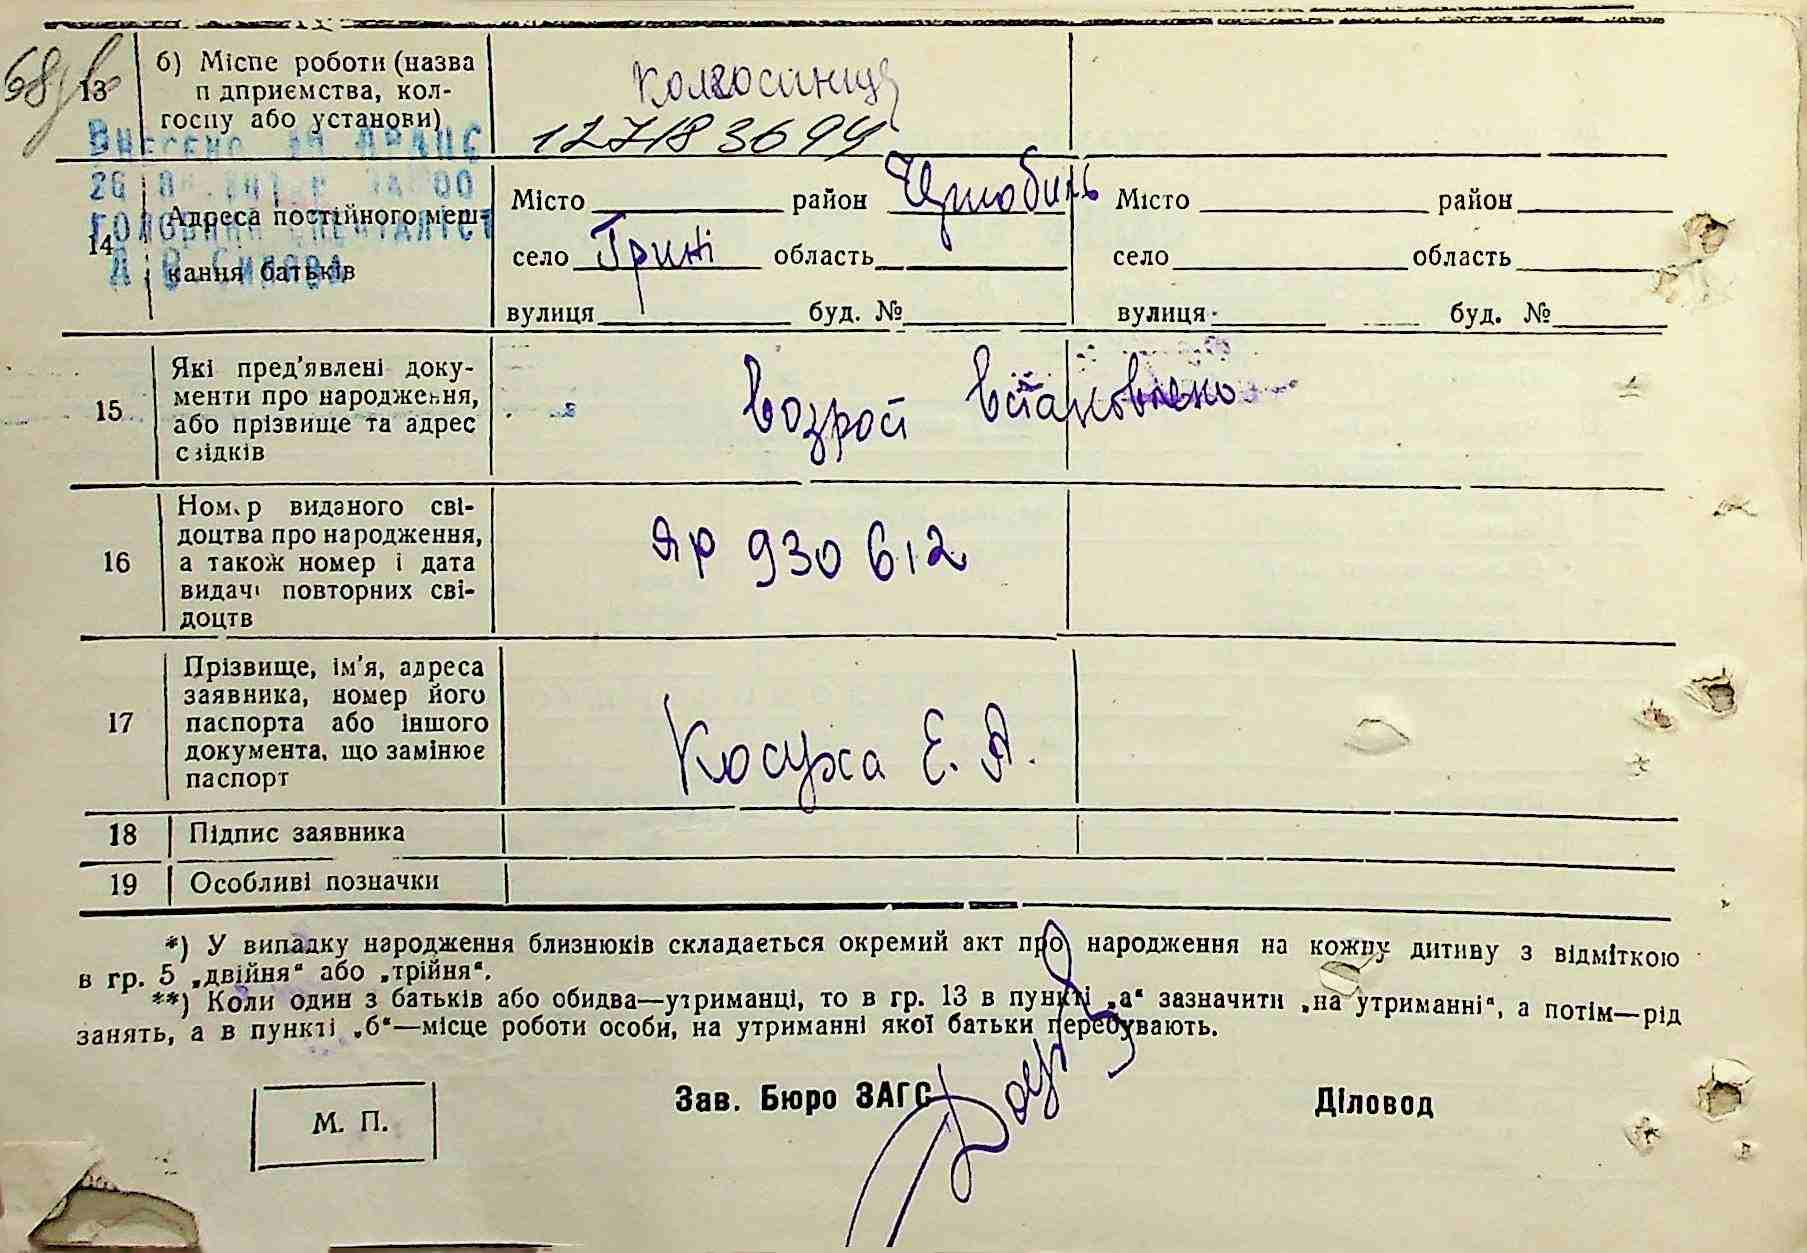 68
13
б) Місце роботи (назва
п дприємства, кол-
госпу або установи)
колгоспниця
12718 3694
ВНЕСЕНО
26
ГОЛОВНИЙ СПЕЦІАЛІСТ
14
Адреса постійного меш-
кання батьків
Місто район Чорнобиль
село Грині область
вулиця буд. №
Місто район
село область
вулиця буд. №
15
Які пред'явлені доку-
менти про народження,
або прізвище та адрес
свідків
возрост встановлено
16
Номер виданого сві-
доцтва про народження,
а також номер і дата
видачі повторних сві-
доцтв
ЯР 930612
17
Прізвище, ім'я, адреса
заявника, номер його
паспорта або іншого
документа, що замінює
паспорт
Косуха Е. А.
18 Підпис заявника
19 Особливі позначки
*) У випадку народження близнюків складається окремий акт про народження на кожну дитину з відміткою
в гр. 5 „двійня“ або „трійня“.
**) Коли один з батьків або обидва—утриманці, то в гр. 13 в пункті „а“ зазначити „на утриманні“, а потім—рід
занять, а в пункті „б“—місце роботи особи, на утриманні якої батьки перебувають.
М. П.
Зав. Бюро ЗАГС
Діловод